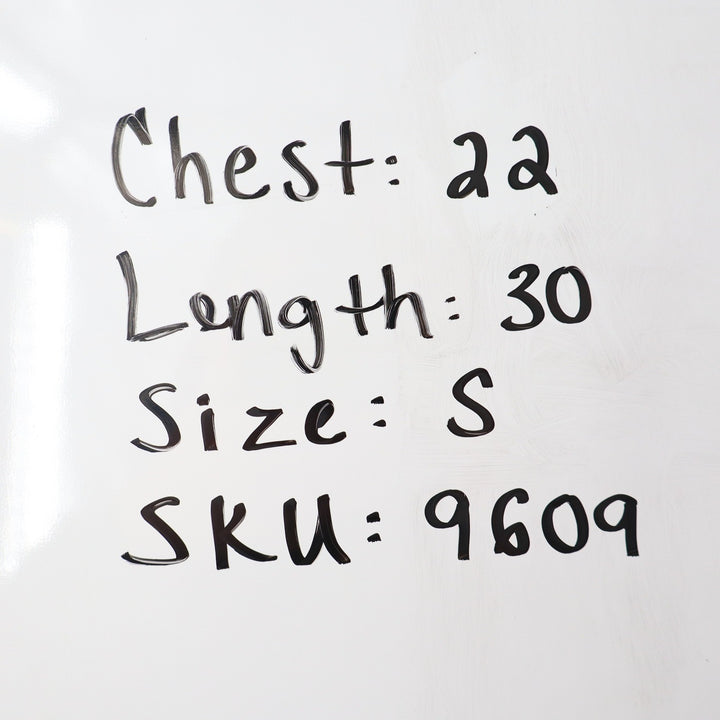 Chest: 22
Length: 30
Size: S
SKU: 9609